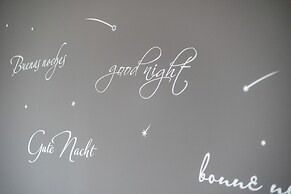 Buenas noches
good night
Gute Nacht
bonne